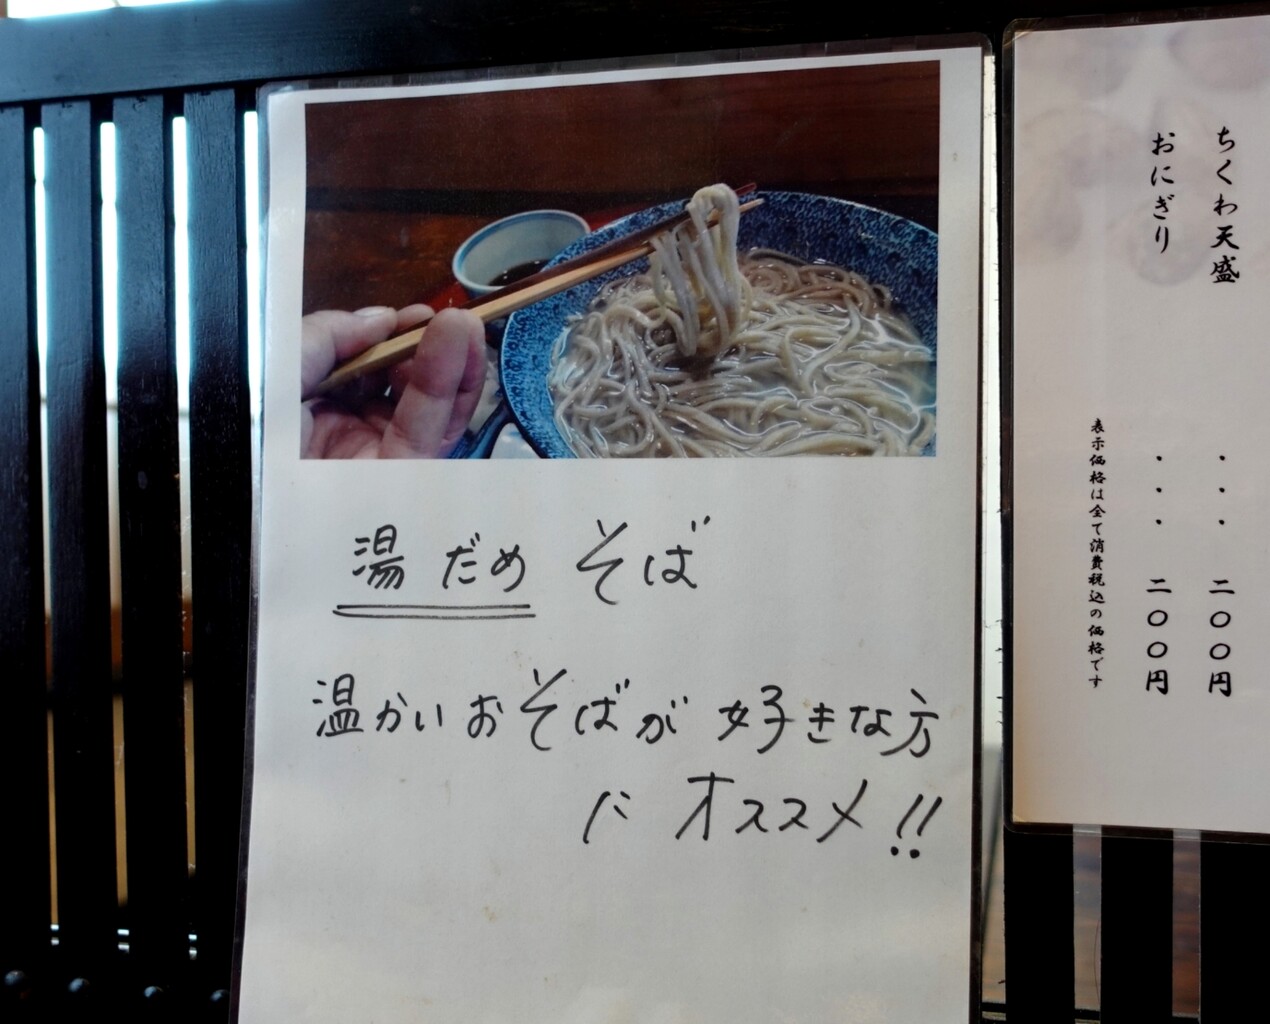 湯だめ そば
温かいおそばが 好きな方
に オススメ!!
ちくわ天盛 ・・・ 二〇〇円
おにぎり ・・・ 二〇〇円
表示価格は全て消費税込の価格です